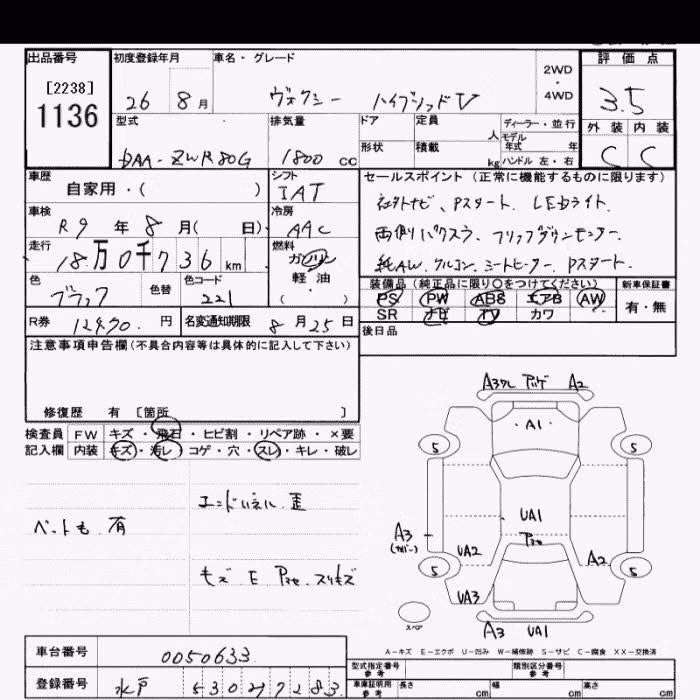 出品番号
[2238]
1136
初度登録年月
26 8月
車名・グレード
ヴォクシー ハイブリッドV
2WD
・
4WD
評価点
3.5
外装 内装
C C
型式
DAA-ZWR80G
排気量
1800 cc
ドア 定員 人
形状 積載 kg
ディーラー・並行
モデル年式 年
ハンドル 左・右
車歴
自家用・( )
シフト
IAT
車検
R9 年 8 月( 日)
冷房
AAC
走行
18万0千736km
燃料
ガソリン
軽油
( ・ )
色
ブラック
色替
色コード
221
R券 12470 円
名変通知期限 8月25日
セールスポイント(正常に機能するものに限ります)
社外ナビ、Pスタート、LEDライト
両側パワスラ、フリップダウンモニター
純AW、クルコン、シートヒーター、Pスタート
装備品(純正品に限り○をつけてください)
PS PW ABS エアB AW
SR ナビ TV カワ
新車保証書
有・無
後日品
注意事項申告欄(不具合内容等は具体的に記入して下さい)
修復歴 有 [箇所 ]
検査員 FW キズ・飛石・ヒビ割・リペア跡・×要
記入欄 内装 キズ・汚レ・コゲ・穴・スレ・キレ・破レ
ペットも 有
歪
キズ E
A2
A1
5 5
UA1
A3
(カバー)
UA2
A2
5 5
UA3
スペア
A3 UA1
A-キズ E-エクボ U-凹み W-補修跡 S-サビ C-腐食 XX-交換済
車台番号 0050633
登録番号 水戸 530ﾇ7283
型式指定番号
参考
類別区分番号
参考
車庫証明用
参考
長さ cm 幅 cm 高さ cm